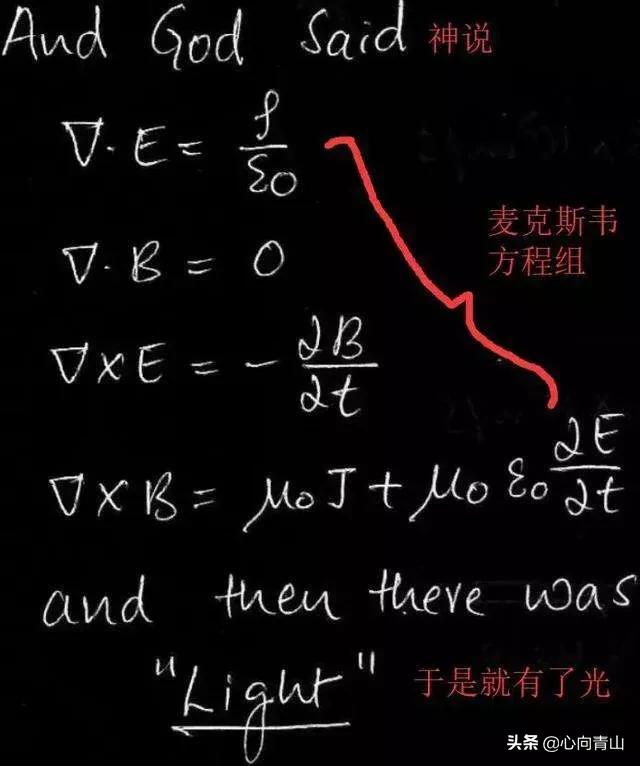 And God Said 神说
∇·E = ρ/ε0
∇·B = 0
麦克斯韦
方程组
∇×E = -∂B/∂t
∇×B = μ0J + μ0ε0 ∂E/∂t
and then there was
"Light" 于是就有了光
头条 @心向青山